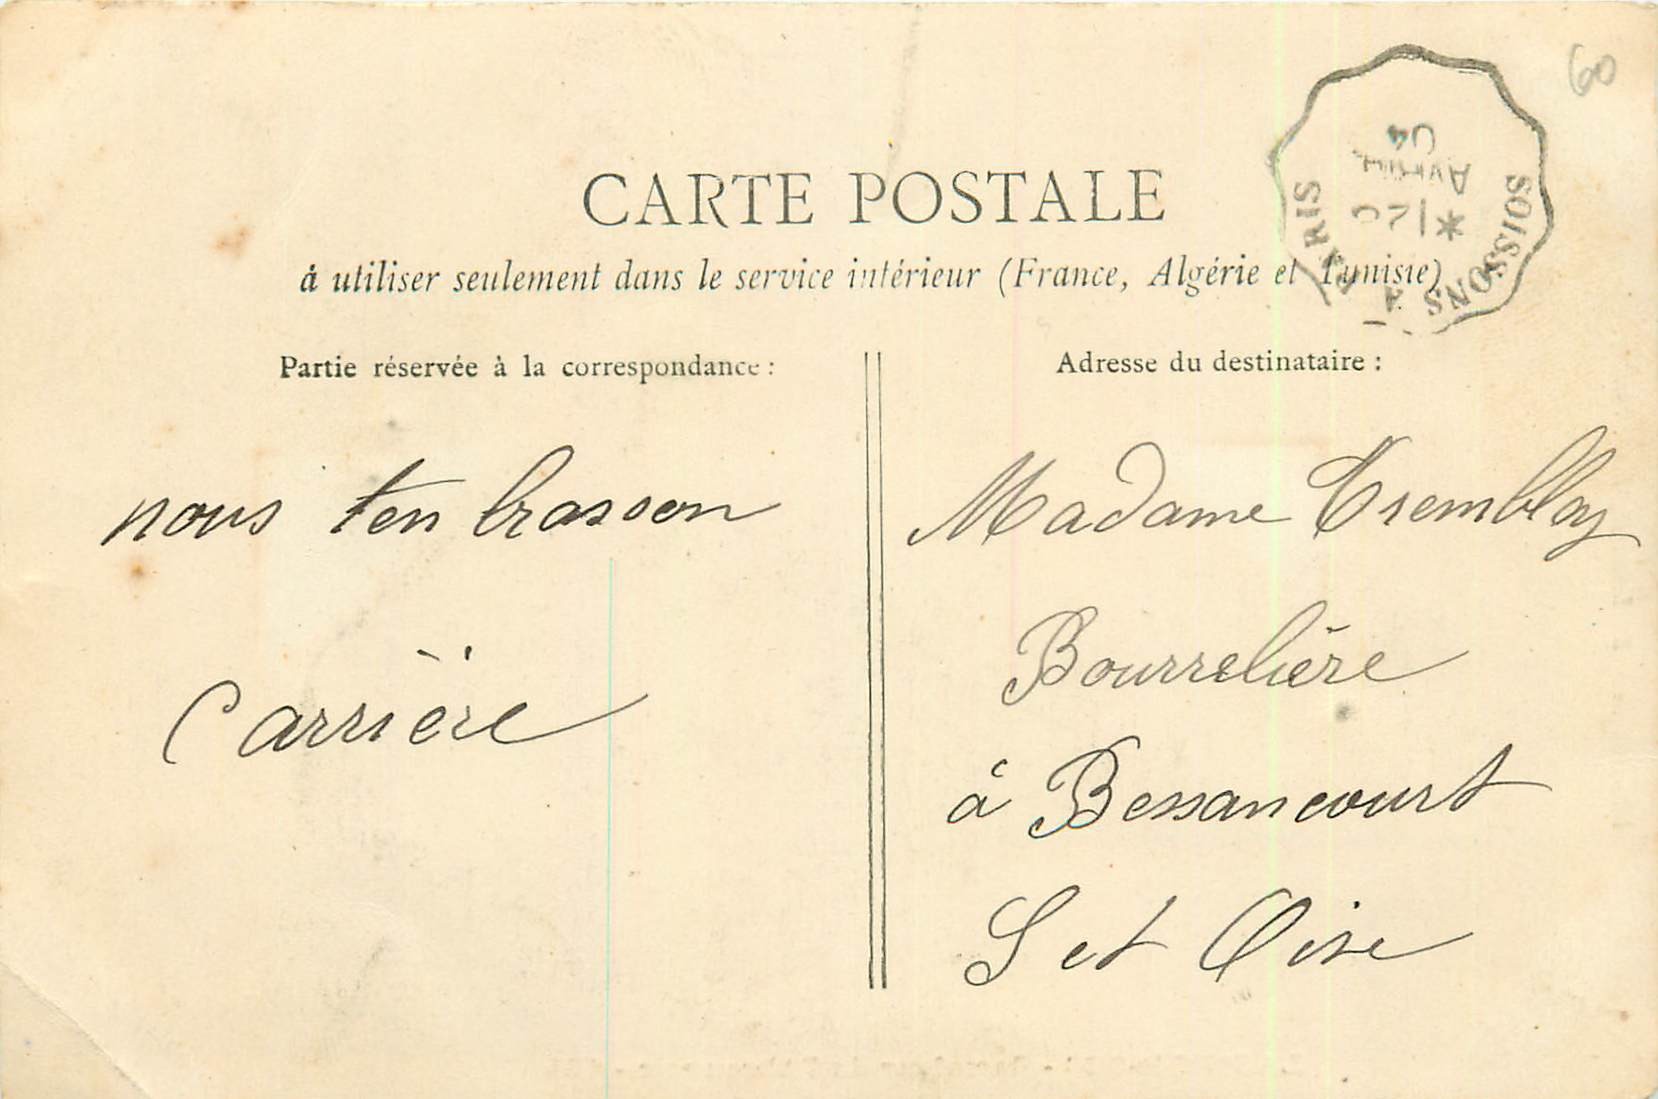 60
CARTE POSTALE
à utiliser seulement dans le service intérieur (France, Algérie et Tunisie)
SOISSONS A PARIS
AVRIL
04
Partie réservée à la correspondance :
nous ten brasson
Carrière
Adresse du destinataire :
Madame Tremblay
Bourrelière
à Bessancourt
S et Oise